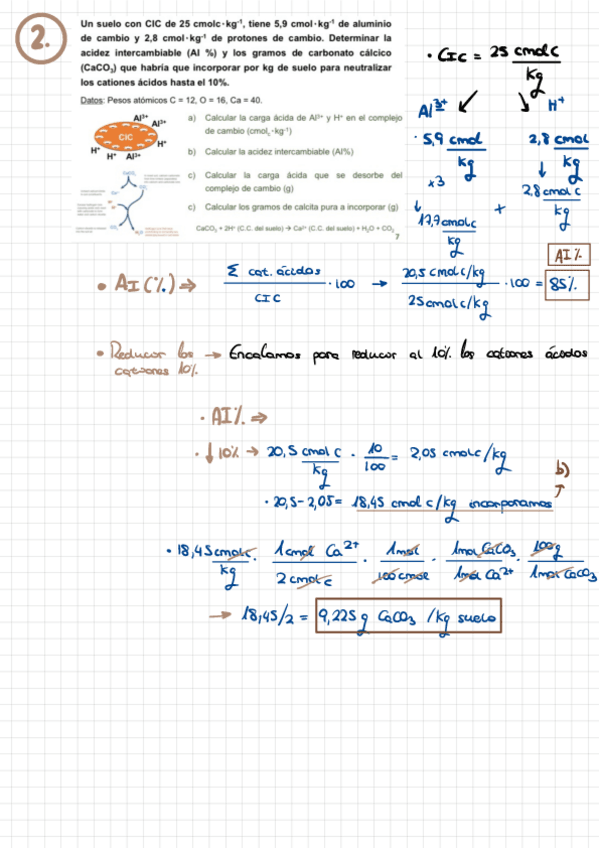 2.
Un suelo con CIC de 25 cmolc·kg⁻¹, tiene 5,9 cmol·kg⁻¹ de aluminio
de cambio y 2,8 cmol·kg⁻¹ de protones de cambio. Determinar la
acidez intercambiable (AI %) y los gramos de carbonato cálcico
(CaCO₃) que habría que incorporar por kg de suelo para neutralizar
los cationes ácidos hasta el 10%.
Datos: Pesos atómicos C = 12, O = 16, Ca = 40.
Al³⁺
Al³⁺
CIC
H⁺
H⁺
H⁺ Al³⁺
a) Calcular la carga ácida de Al³⁺ y H⁺ en el complejo
de cambio (cmolc·kg⁻¹)
b) Calcular la acidez intercambiable (AI%)
c) Calcular la carga ácida que se desorbe del
complejo de cambio (g)
c) Calcular los gramos de calcita pura a incorporar (g)
CaCO₃ + 2H⁺ (C.C. del suelo) → Ca²⁺ (C.C. del suelo) + H₂O + CO₂
7
· CIC = 25 cmolc/kg
Al³⁺ ↙ ↘ H⁺
· 5,9 cmol/kg 2,8 cmol/kg
x3 ↓
↓ + 2,8 cmolc/kg
17,7 cmolc/kg
AI%
• AI(%) ⇒ Σ cat. ácidos / CIC · 100 → 20,5 cmolc/kg / 25 cmolc/kg · 100 = 85%
• Reducir los → Encalamos para reducir al 10% los cationes ácidos
cationes 10%
· AI% ⇒
· ↓ 10% → 20,5 cmolc/kg · 10/100 = 2,05 cmolc/kg
b)
· 20,5 - 2,05 = 18,45 cmolc/kg incorporamos
· 18,45 cmolc/kg · 1 cmol Ca²⁺/2 cmolc · 1 mol/100 cmol · 1 mol CaCO₃/1 mol Ca²⁺ · 100 g/1 mol CaCO₃
→ 18,45/2 = 9,225 g CaCO₃ /kg suelo